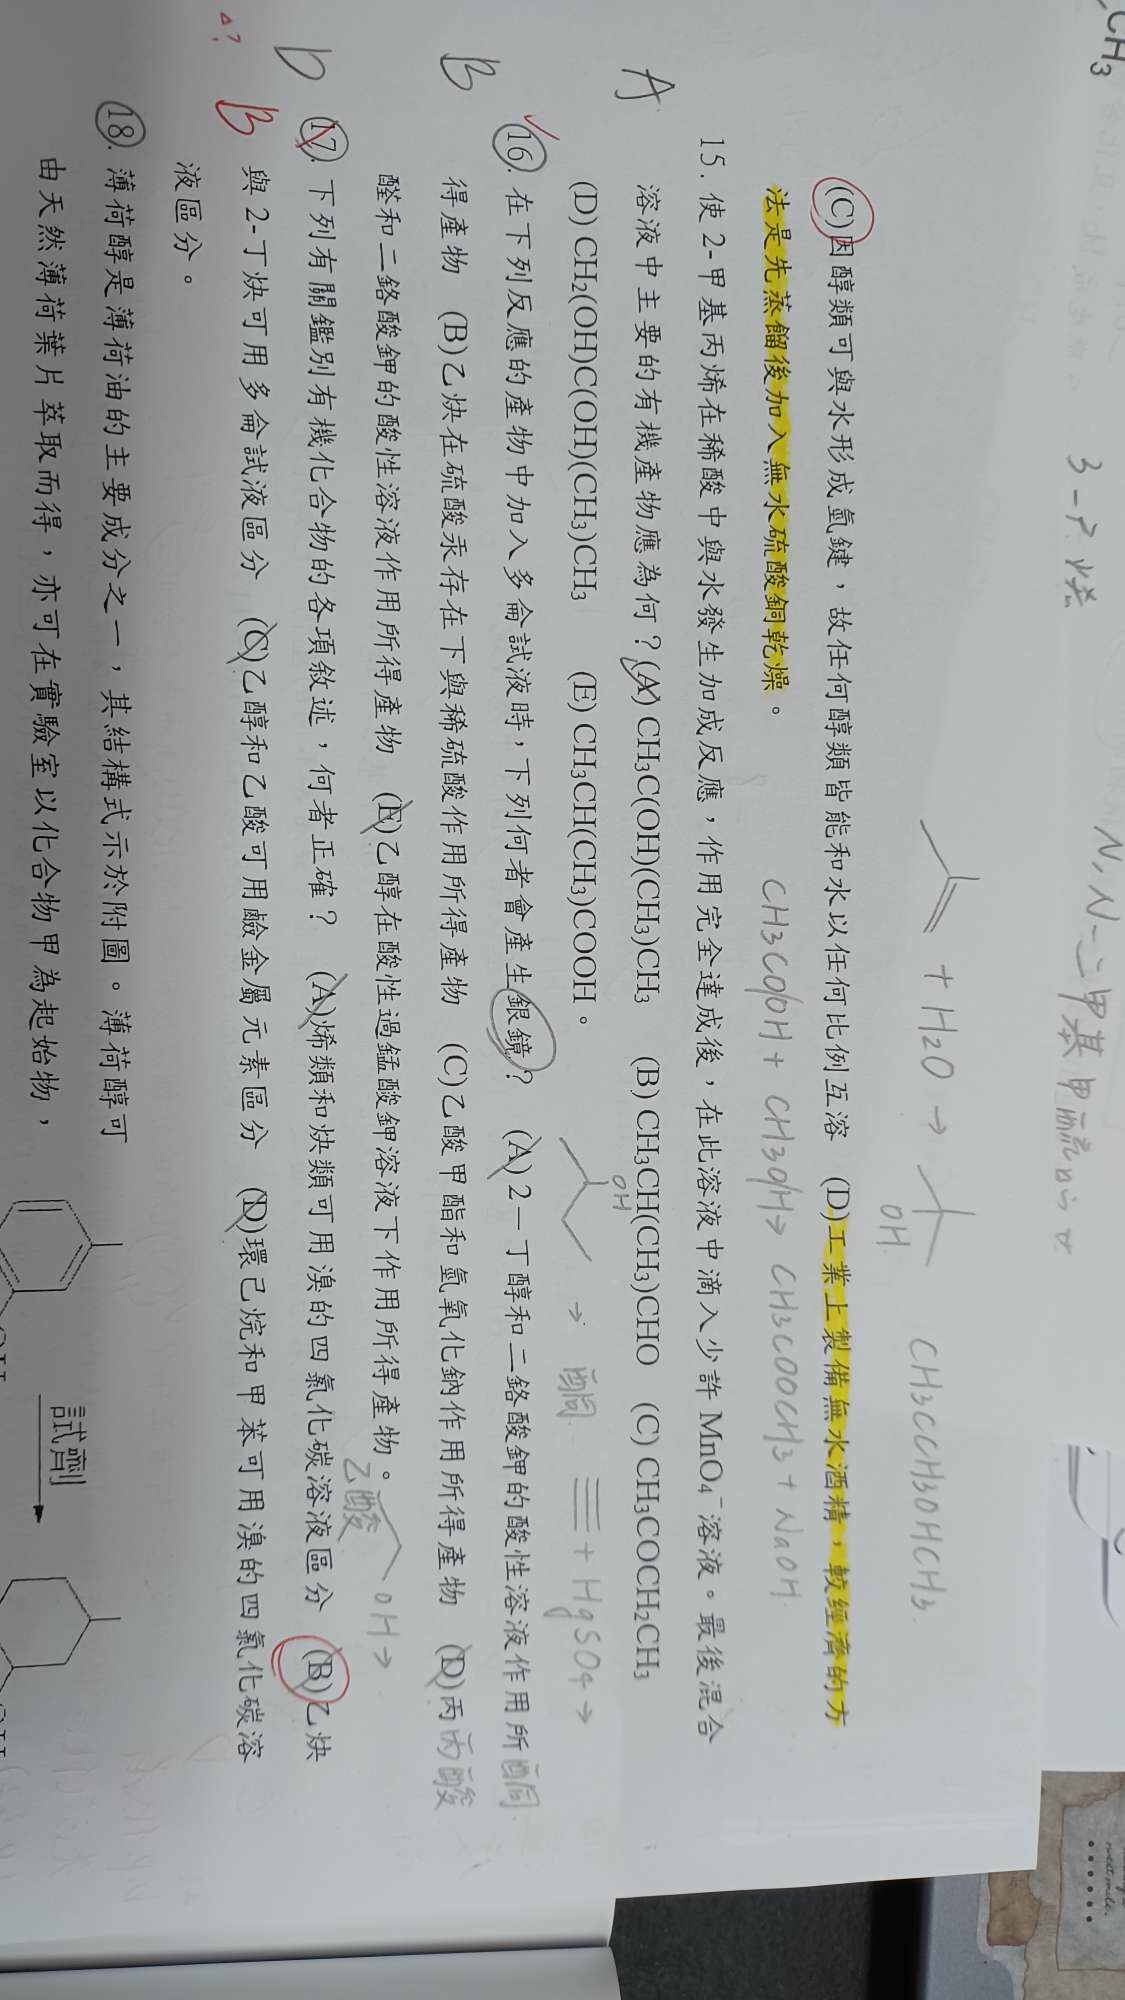 CH3
3-戊炔
N,N-二甲基甲醯
+ H2O →
OH
CH3CCH3OHCH3.
(C)因醇類可與水形成氫鍵，故任何醇類皆能和水以任何比例互溶 (D)工業上製備無水酒精，較經濟的方
法是先蒸餾後加入無水硫酸銅乾燥。
CH3COOH + CH3OH → CH3COOCH3 + NaOH.
A
15. 使 2-甲基丙烯在稀酸中與水發生加成反應，作用完全達成後，在此溶液中滴入少許 MnO₄⁻溶液。最後混合
溶液中主要的有機產物應為何？(A) CH₃C(OH)(CH₃)CH₃ (B) CH₃CH(CH₃)CHO (C) CH₃COCH₂CH₃
(D) CH₂(OH)C(OH)(CH₃)CH₃ (E) CH₃CH(CH₃)COOH。
OH
→ 酮
≡ + HgSO4 →
B
16. 在下列反應的產物中加入多侖試液時，下列何者會產生銀鏡？ (A) 2－丁醇和二鉻酸鉀的酸性溶液作用所
酮
得產物 (B)乙炔在硫酸汞存在下與稀硫酸作用所得產物 (C)乙酸甲酯和氫氧化鈉作用所得產物 (D)丙
丙酸
醛和二鉻酸鉀的酸性溶液作用所得產物 (E)乙醇在酸性過錳酸鉀溶液下作用所得產物。
乙酸
OH →
D
B
17. 下列有關鑑別有機化合物的各項敘述，何者正確？ (A)烯類和炔類可用溴的四氯化碳溶液區分 (B)乙炔
與 2-丁炔可用多侖試液區分 (C)乙醇和乙酸可用鹼金屬元素區分 (D)環己烷和甲苯可用溴的四氯化碳溶
液區分。
△?
18. 薄荷醇是薄荷油的主要成分之一，其結構式示於附圖。薄荷醇可
由天然薄荷葉片萃取而得，亦可在實驗室以化合物甲為起始物，
試劑
OH
OH